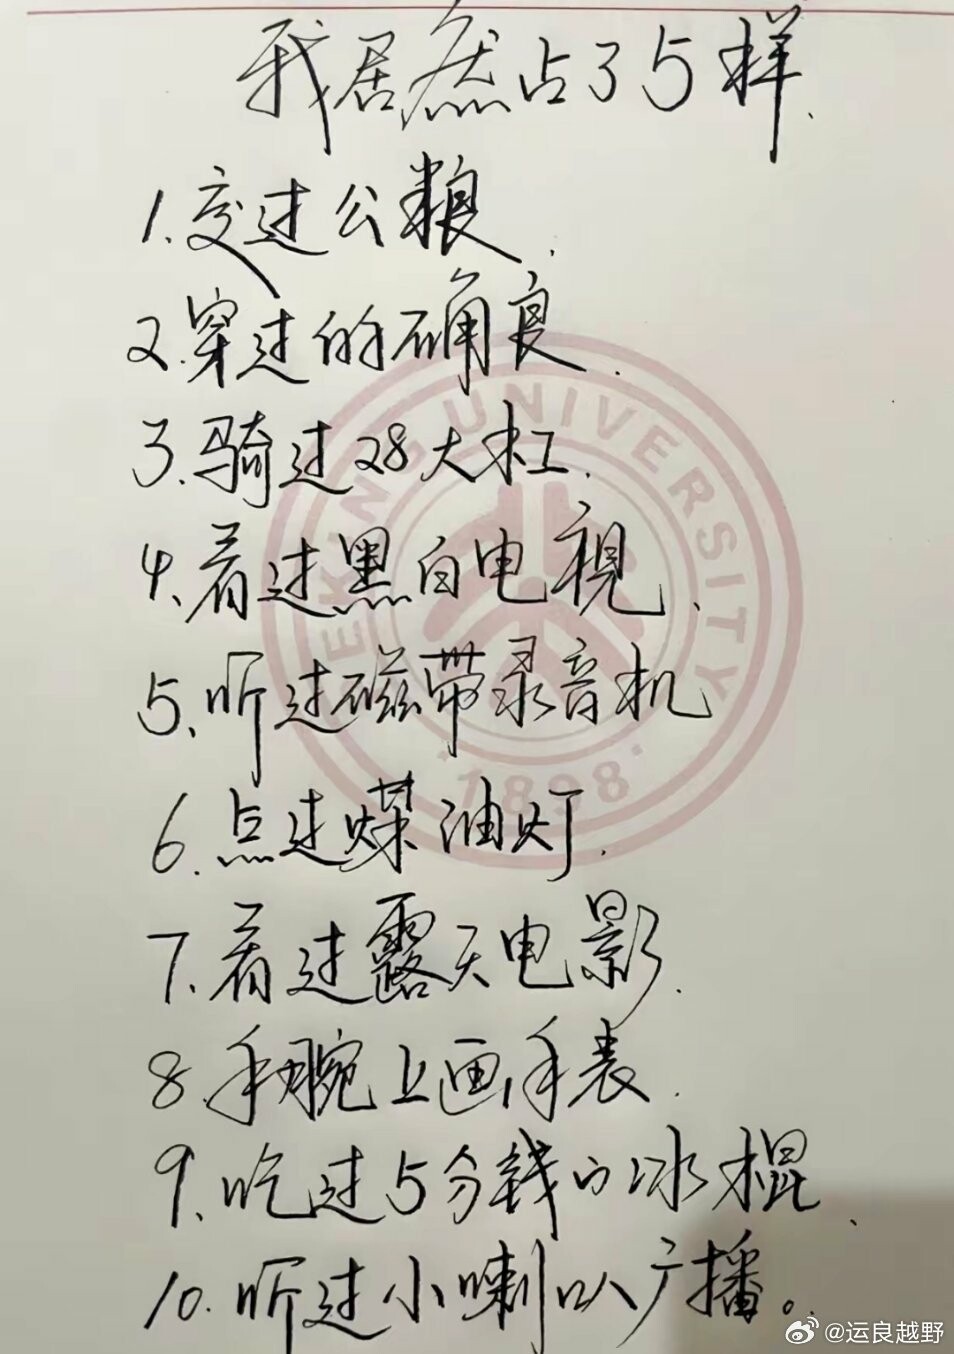 我居然占了5样.
1.交过公粮.
2.穿过的确良.
3.骑过28大杠.
4、看过黑白电视.
5、听过磁带录音机
6.点过煤油灯.
7.看过露天电影.
8.手腕上画手表.
9、吃过5分钱的冰棍、
10.听过小喇叭广播。
EKING UNIVERSITY
1898
@运良越野